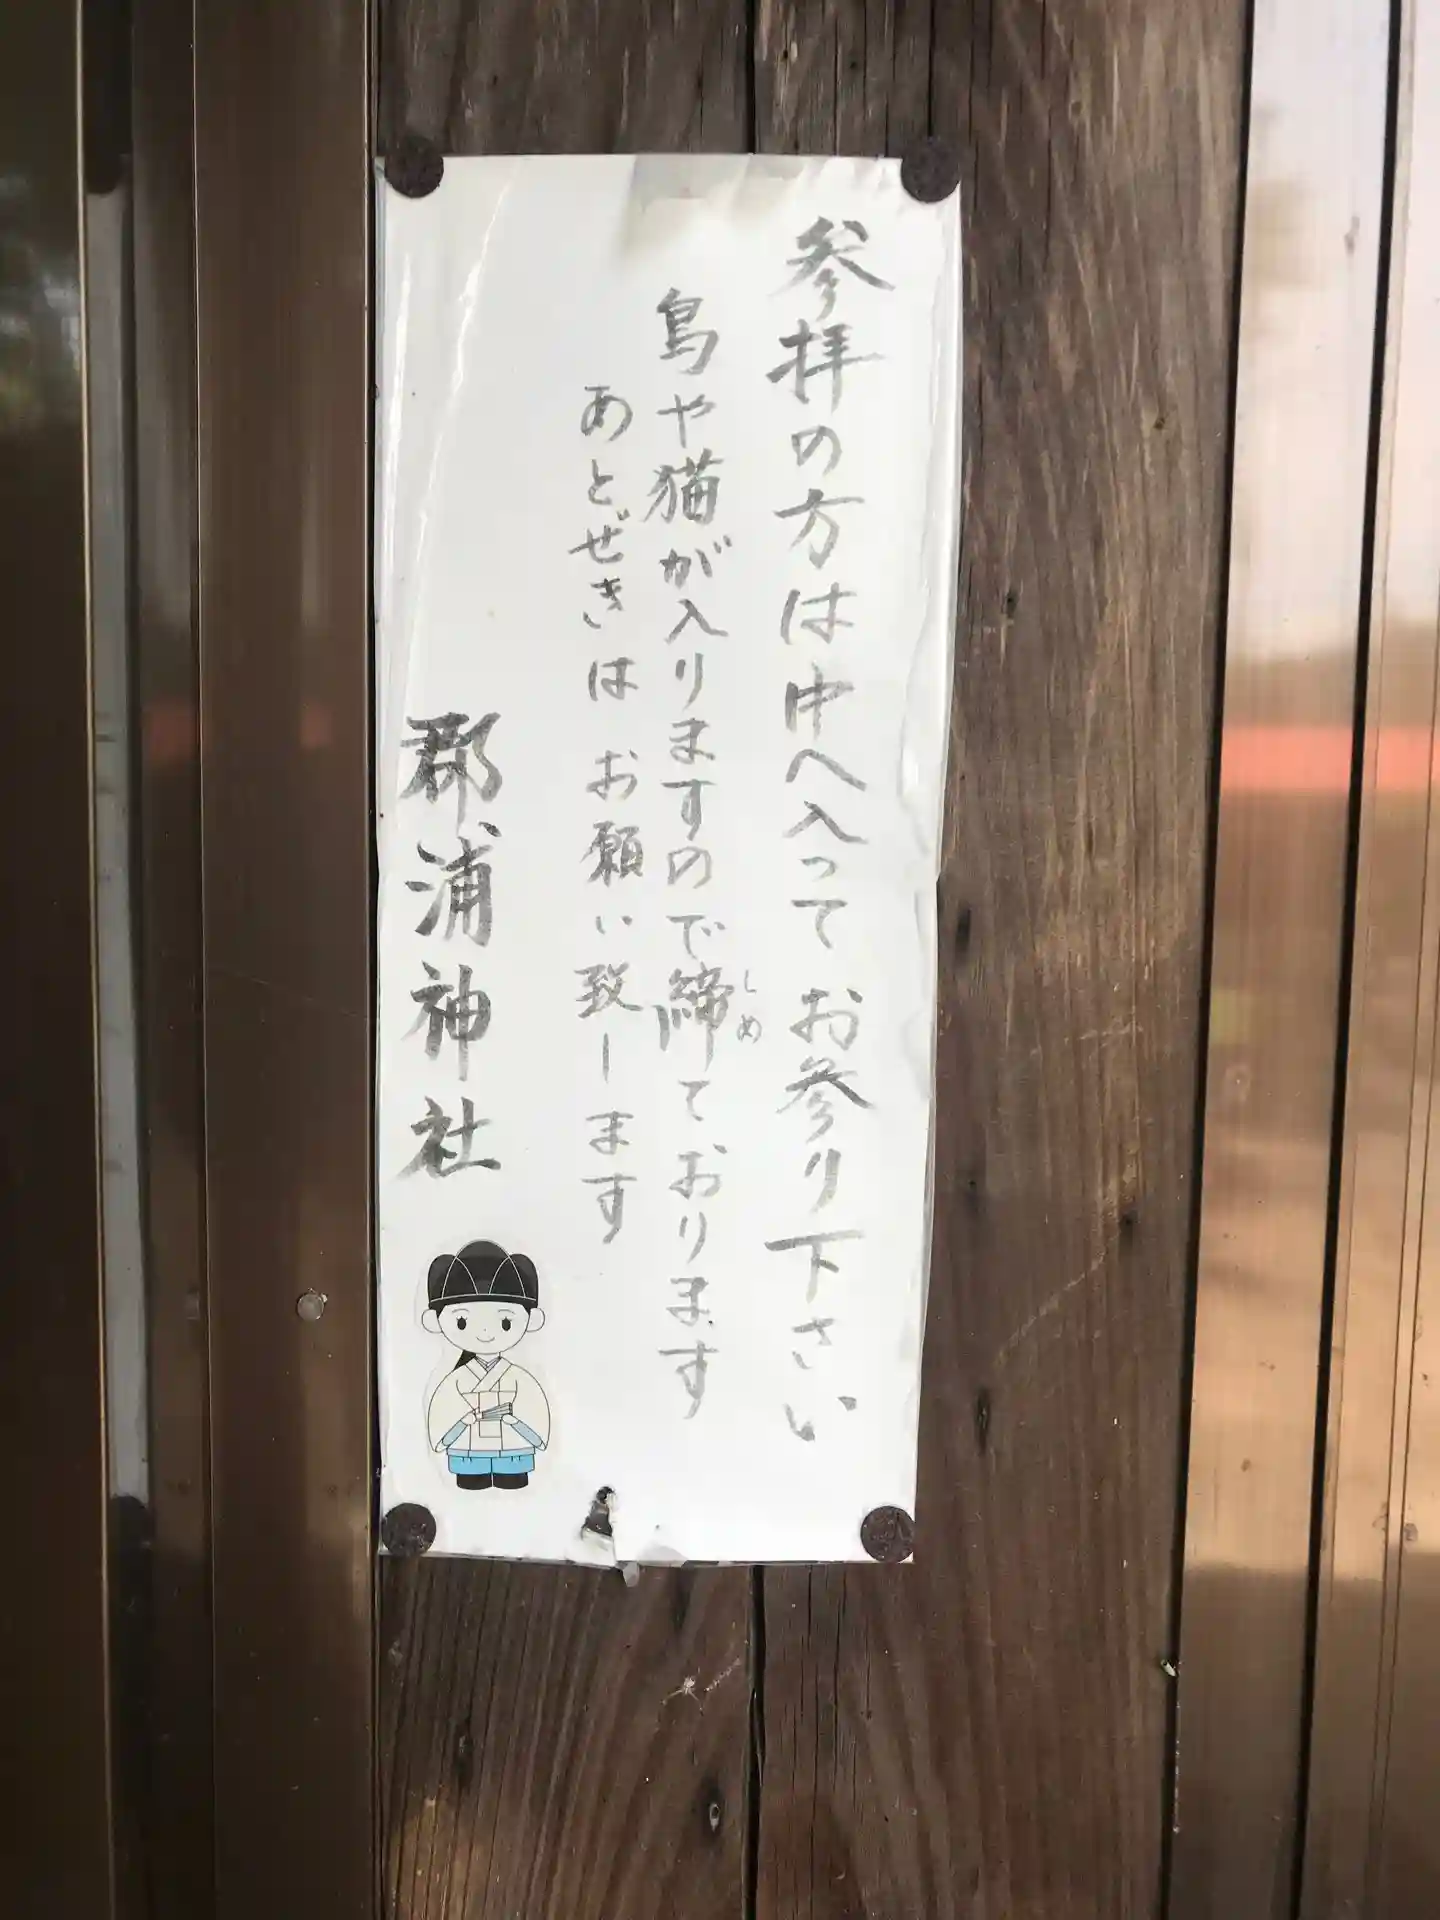 参拝の方は中へ入ってお参り下さい
鳥や猫が入りますので締ております
しめ
あとぜきはお願い致します
郡浦神社